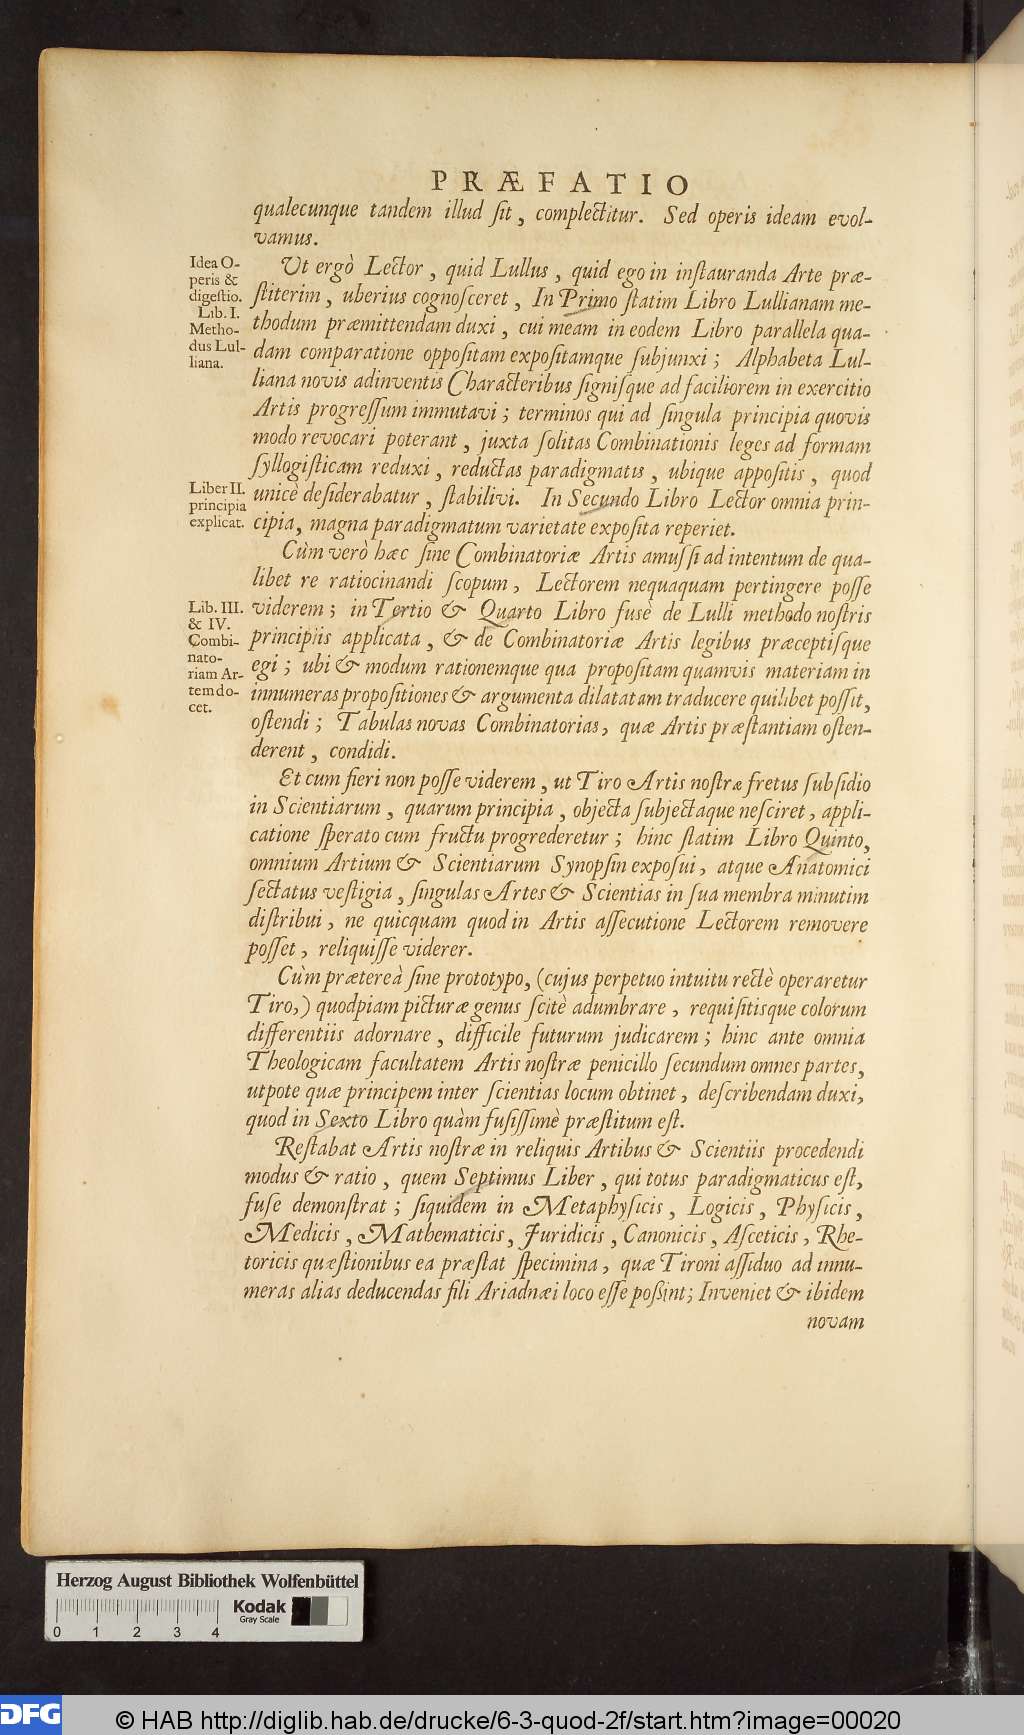 PRÆFATIO
qualecunque tandem illud ſit, complectitur. Sed operis ideam evol-
vamus.
Idea O-
peris &
digeſtio.
Lib. I.
Metho-
dus Lul-
liana.
Ut ergò Lector, quid Lullus, quid ego in inſtauranda Arte præ-
ſtiterim, uberius cognoſceret, In Primo ſtatim Libro Lullianam me-
thodum præmittendam duxi, cui meam in eodem Libro parallela qua-
dam comparatione oppoſitam expoſitamque ſubjunxi; Alphabeta Lul-
liana novis adinventis Characteribus ſigniſque ad faciliorem in exercitio
Artis progreſſum immutavi; terminos qui ad ſingula principia quovis
modo revocari poterant, juxta ſolitas Combinationis leges ad formam
ſyllogiſticam reduxi, reductas paradigmatis, ubique appoſitis, quod
Liber II.
principia
explicat.
unicè deſiderabatur, ſtabilivi. In Secundo Libro Lector omnia prin-
cipia, magna paradigmatum varietate expoſita reperiet.
Cùm verò hæc ſine Combinatoriæ Artis amuſſi ad intentum de qua-
libet re ratiocinandi ſcopum, Lectorem nequaquam pertingere poſſe
Lib. III.
& IV.
Combi-
nato-
riam Ar-
tem do-
cet.
viderem; in Tertio & Quarto Libro fusè de Lulli methodo noſtris
principiis applicata, & de Combinatoriæ Artis legibus præceptiſque
egi; ubi & modum rationemque qua propoſitam quamvis materiam in
innumeras propoſitiones & argumenta dilatatam traducere quilibet poſſit,
oſtendi; Tabulas novas Combinatorias, quæ Artis præſtantiam oſten-
derent, condidi.
Et cum fieri non poſſe viderem, ut Tiro Artis noſtræ fretus ſubſidio
in Scientiarum, quarum principia, objecta ſubjectaque neſciret, appli-
catione ſperato cum fructu progrederetur; hinc ſtatim Libro Quinto,
omnium Artium & Scientiarum Synopſin expoſui, atque Anatomici
ſectatus veſtigia, ſingulas Artes & Scientias in ſua membra minutim
diſtribui, ne quicquam quod in Artis aſſecutione Lectorem removere
poſſet, reliquiſſe viderer.
Cùm prætereà ſine prototypo, (cujus perpetuo intuitu rectè operaretur
Tiro,) quodpiam picturæ genus ſcitè adumbrare, requiſitisque colorum
differentiis adornare, difficile futurum judicarem; hinc ante omnia
Theologicam facultatem Artis noſtræ penicillo ſecundum omnes partes,
utpote quæ principem inter ſcientias locum obtinet, deſcribendam duxi,
quod in Sexto Libro quàm fuſiſſimè præſtitum eſt.
Reſtabat Artis noſtræ in reliquis Artibus & Scientiis procedendi
modus & ratio, quem Septimus Liber, qui totus paradigmaticus eſt,
fuſe demonſtrat; ſiquidem in Metaphyſicis, Logicis, Phyſicis,
Medicis, Mathematicis, Juridicis, Canonicis, Aſceticis, Rhe-
toricis quæſtionibus ea præſtat ſpecimina, quæ Tironi aſſiduo ad innu-
meras alias deducendas fili Ariadnæi loco eſſe poſsint; Inveniet & ibidem
novam
Herzog August Bibliothek Wolfenbüttel
Kodak
Gray Scale
0 1 2 3 4
DFG
© HAB http://diglib.hab.de/drucke/6-3-quod-2f/start.htm?image=00020